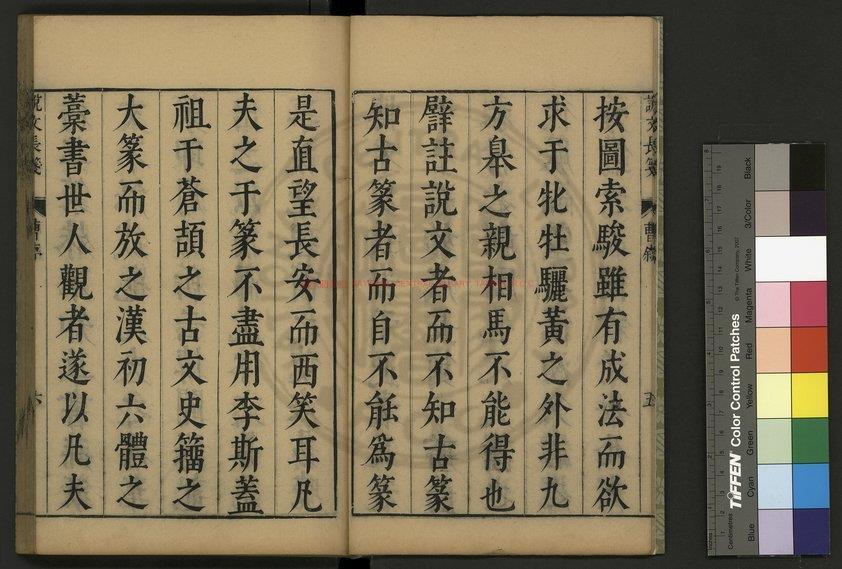 按圖索駿雖有成法而欲
求于牝牡驪黃之外非九
方皋之親相馬不能得也
譬註說文者而不知古篆
知古篆者而自不能爲篆
是直望長安而西笑耳凡
夫之于篆不盡用李斯蓋
祖于蒼頡之古文史籀之
大篆而放之漢初六體之
藁書世人觀者遂以凡夫
說文長箋
六
Black
3/Color
White
Magenta
Red
Yellow
Green
Cyan
Blue
© The Tiffen Company, 2007
TIFFEN Color Control Patches
Centimetres